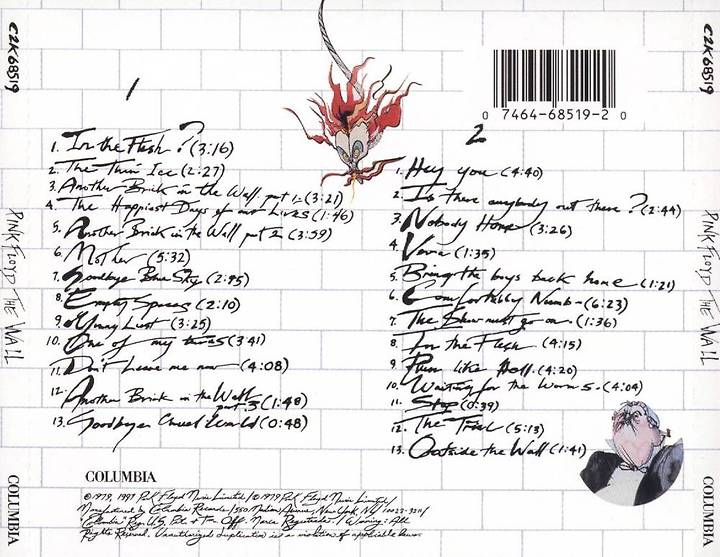 C2K 68519
PINK FLOYD THE WALL
COLUMBIA
1
1. In the Flesh? (3:16)
2. The Thin Ice (2:27)
3. Another Brick in the Wall part 1 (3:21)
4. The Happiest Days of our Lives (1:46)
5. Another Brick in the Wall part 2 (3:59)
6. Mother (5:32)
7. Goodbye Blue Sky (2:45)
8. Empty Spaces (2:10)
9. Young Lust (3:25)
10. One of my turns (3:41)
11. Don't Leave me now (4:08)
12. Another Brick in the Wall
part 3 (1:48)
13. Goodbye Cruel World (0:48)
0 7464-68519-2 0
2
1. Hey you (4:40)
2. Is there anybody out there? (2:44)
3. Nobody Home (3:26)
4. Vera (1:35)
5. Bring the boys back home (1:21)
6. Comfortably Numb - (6:23)
7. The Show must go on. (1:36)
8. In the Flesh (4:15)
9. Run like Hell. (4:20)
10. Waiting for the Worms. (4:04)
11. Stop (0:39)
12. The Trial (5:13)
13. Outside the Wall (1:41)
COLUMBIA
©1979, 1997 Pink Floyd Music Limited/℗1979 Pink Floyd Music Limited/
Manufactured by Columbia Records/550 Madison Avenue, New York, NY 10022-3211/
"Columbia" Reg. U.S. Pat. & Tm. Off. Marca Registrada./Warning: All
Rights Reserved. Unauthorized duplication is a violation of applicable laws.
C2K 68519
PINK FLOYD THE WALL
COLUMBIA